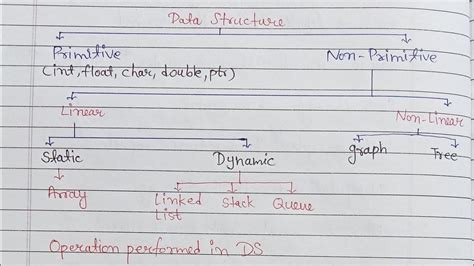 Data Structure
Primitive Non-Primitive
(int, float, char, double, ptr)
Linear Non-Linear
Static Dynamic graph Tree
Array Linked List Stack Queue
Operation performed in DS